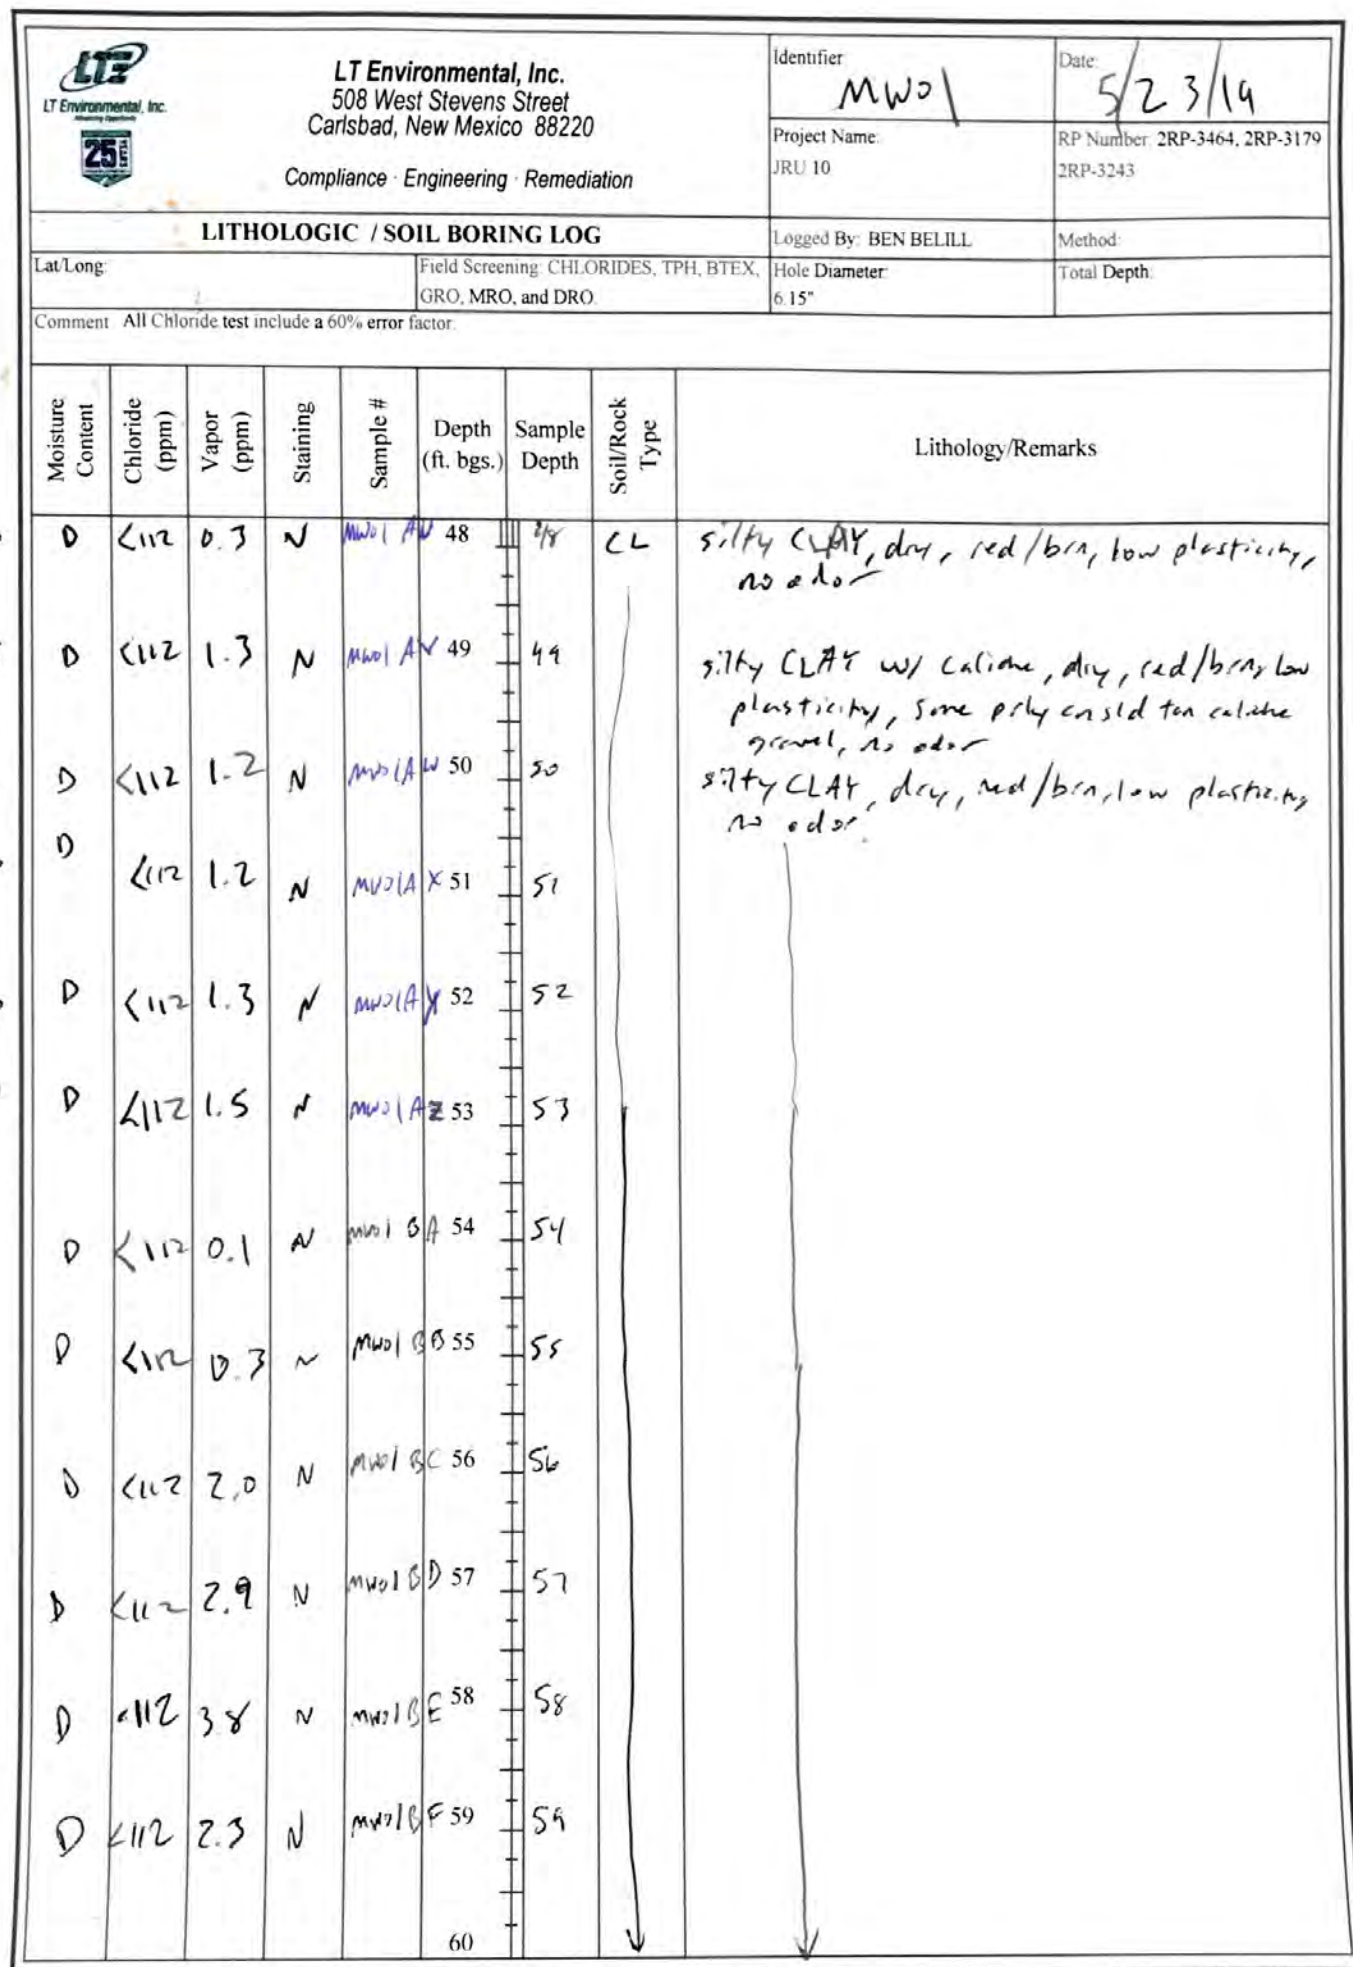 LTE
LT Environmental, Inc.
Advancing Opportunity
25 YEARS
LT Environmental, Inc.
508 West Stevens Street
Carlsbad, New Mexico 88220
Compliance · Engineering · Remediation
Identifier
MW01
Date:
5/23/19
Project Name:
JRU 10
RP Number: 2RP-3464, 2RP-3179
2RP-3243
LITHOLOGIC / SOIL BORING LOG
Logged By: BEN BELILL
Method:
Lat/Long:
Field Screening: CHLORIDES, TPH, BTEX,
GRO, MRO, and DRO.
Hole Diameter:
6.15"
Total Depth:
Comment: All Chloride test include a 60% error factor.
Moisture Content
Chloride (ppm)
Vapor (ppm)
Staining
Sample #
Depth (ft. bgs.)
Sample Depth
Soil/Rock Type
Lithology/Remarks
D <112 0.3 N MW01 AU 48 48 CL silty CLAY, dry, red/brn, low plasticity,
no odor
D <112 1.3 N MW01 AV 49 49 silty CLAY w/ caliche, dry, red/brn, low
plasticity, some prly cnsld tan caliche
gravel, no odor
D <112 1.2 N MW01AW 50 50 silty CLAY, dry, red/brn, low plasticity
no odor
D <112 1.2 N MW01AX 51 51
D <112 1.3 N MW01AY 52 52
D <112 1.5 N MW01AZ 53 53
D <112 0.1 N MW01 BA 54 54
D <112 0.3 N MW01 BB 55 55
D <112 2.0 N MW01 BC 56 56
D <112 2.9 N MW01BD 57 57
D <112 3.8 N MW01BE 58 58
D <112 2.3 N MW01BF 59 59
60